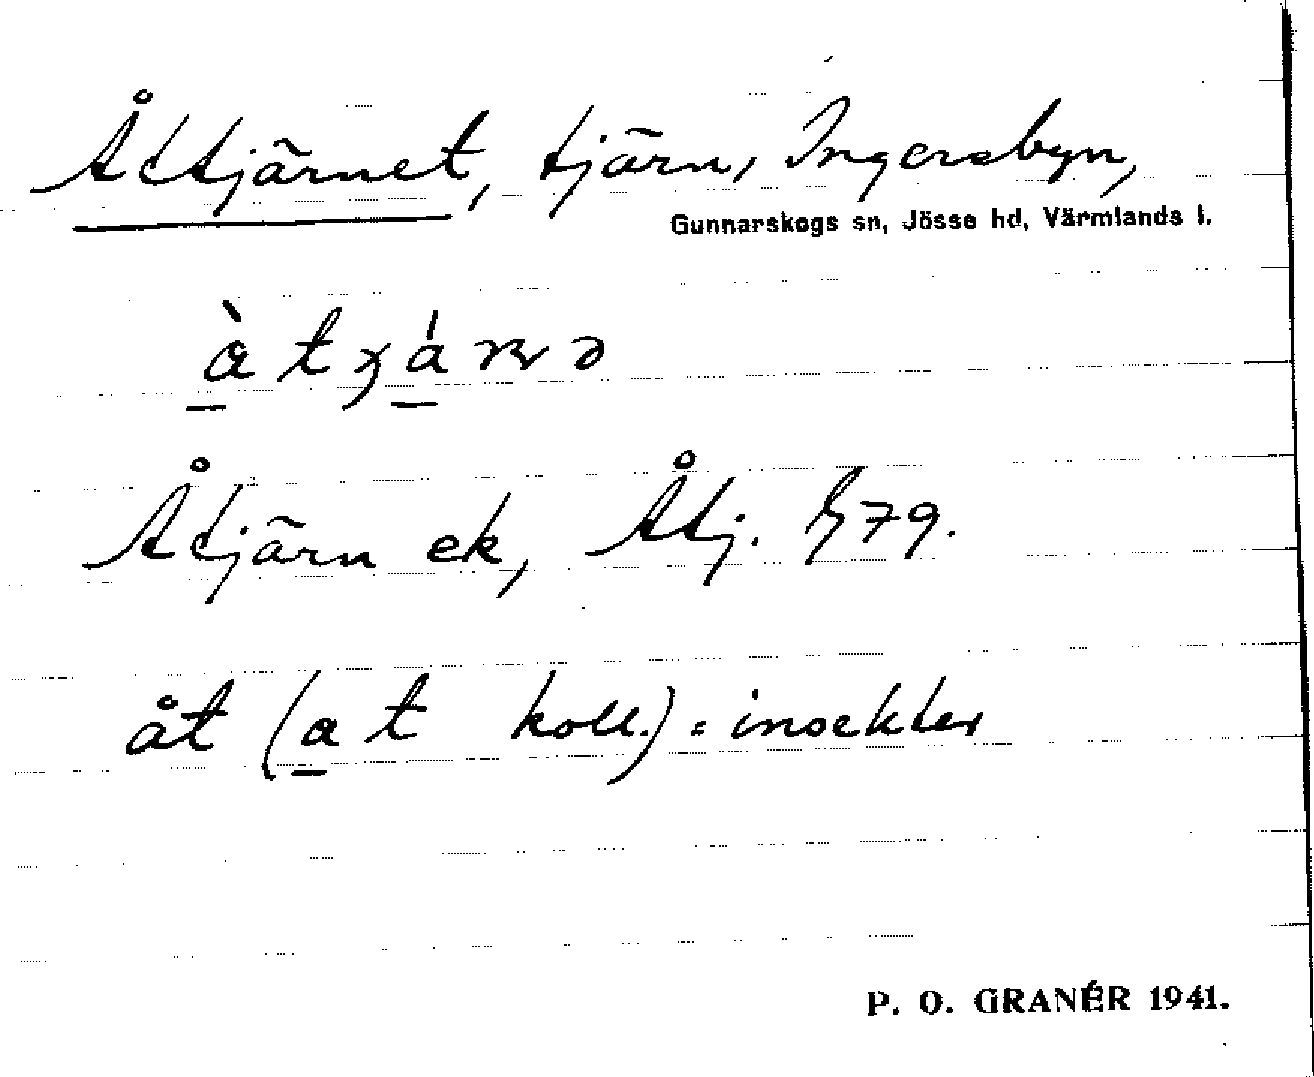 Åttjärnet, tjärn, Ingersbyn,
Gunnarskogs sn, Jösse hd, Värmlands l.
Åtjärn ek,
åt (a t koll.) = insekter
P. O. GRANÉR 1941.